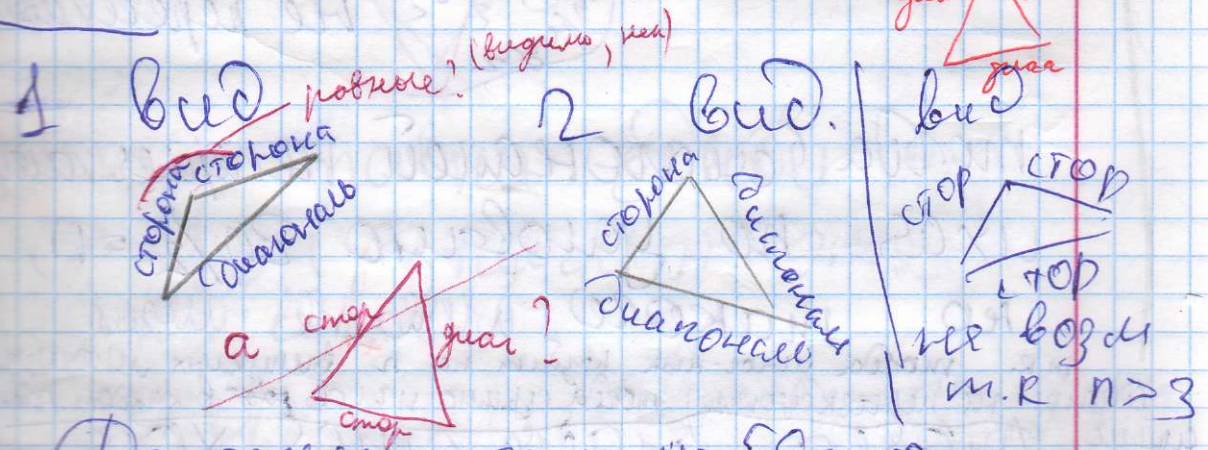 1 вид ровные? (видимо, нет)
сторона
сторона
диагональ
а стор
диаг?
стор
2 вид.
сторона
диагональ
диагональ
диаг
вид
стор
стор
стор
не возм
т.к n>3